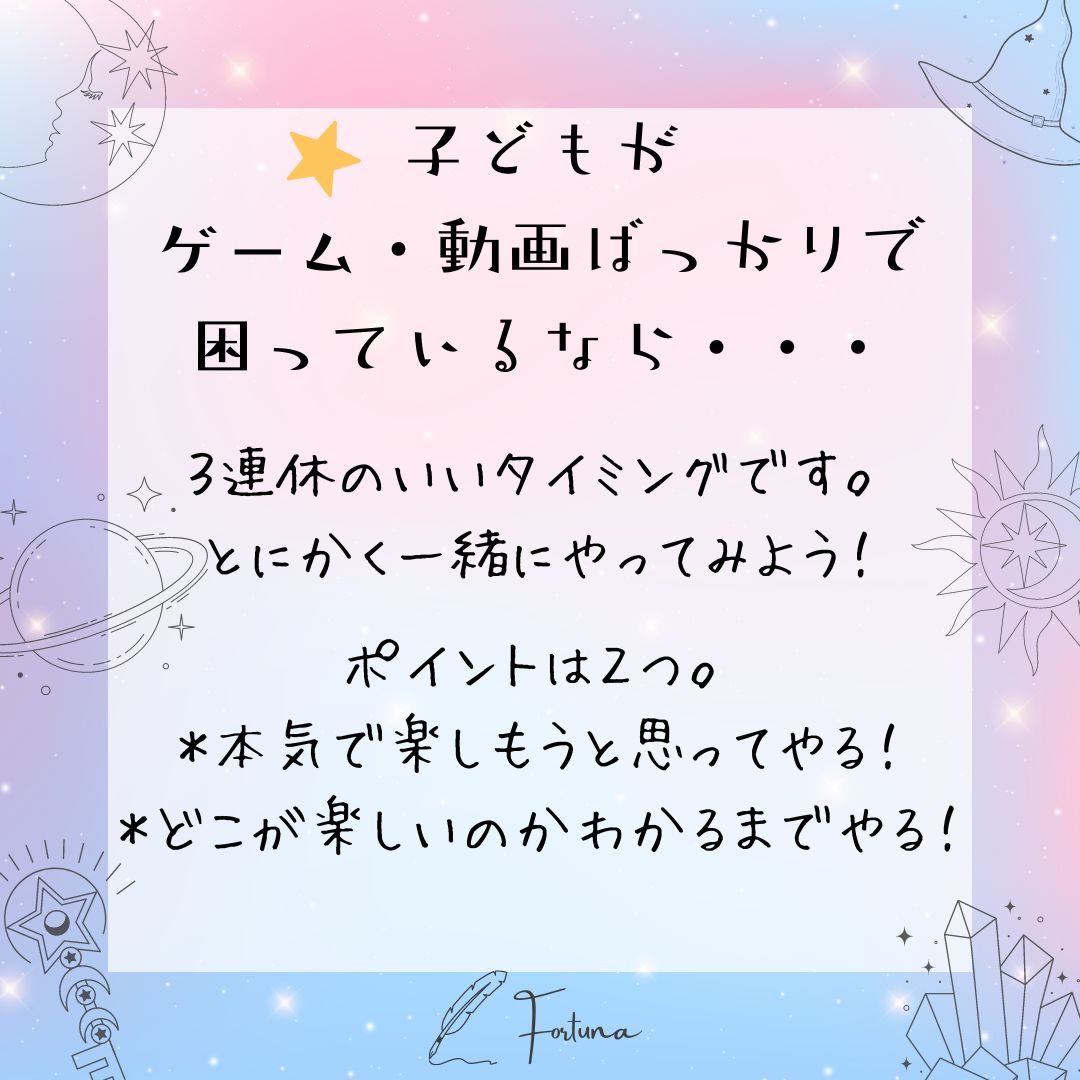 子どもが
ゲーム・動画ばっかりで
困っているなら・・・
3連休のいいタイミングです。
とにかく一緒にやってみよう!
ポイントは2つ。
*本気で楽しもうと思ってやる!
*どこが楽しいのかわかるまでやる!
Fortuna